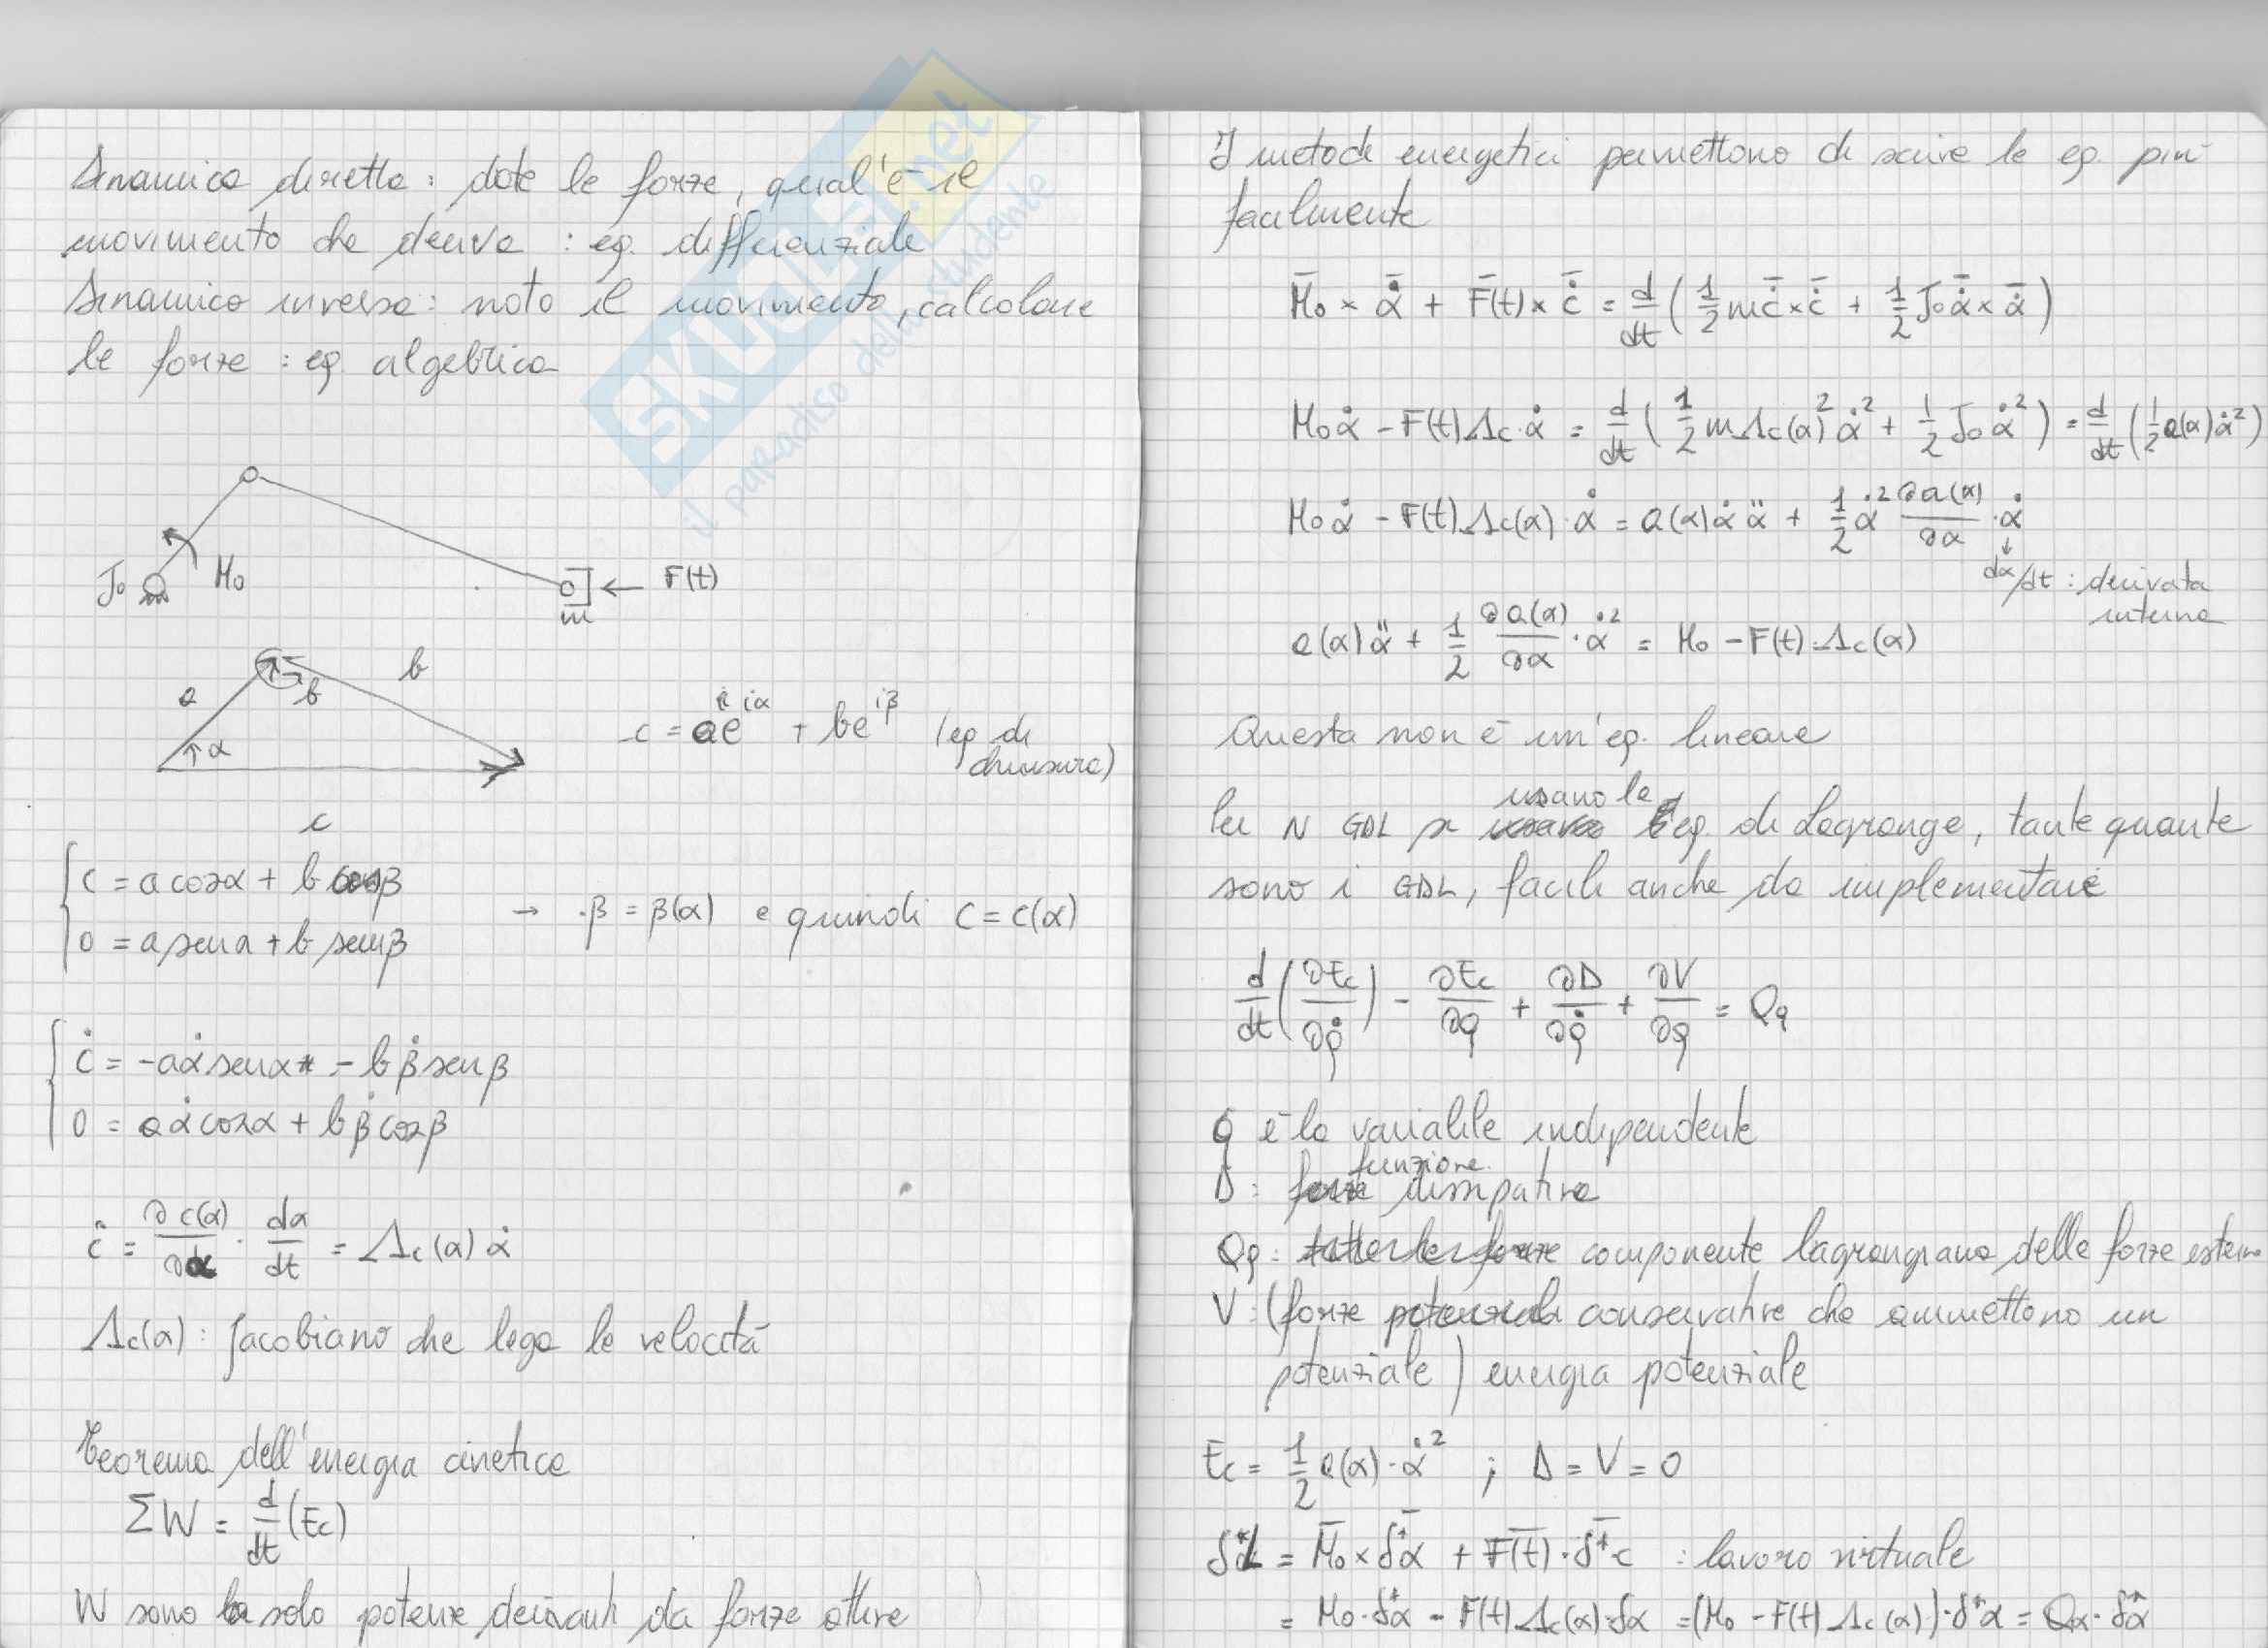 Dinamica diretta: date le forze, qual'è il
movimento che deriva : eq. differenziale
Dinamica inversa: noto il movimento, calcolare
le forze : eq. algebrica
J₀ M₀ m ← F(t)
a b b α c
c = ae^{iα} + be^{iβ} (eq di
chiusura)
{ c = a cosα + b cosβ
0 = a senα + b senβ → β = β(α) e quindi c = c(α)
{ ċ = -aα̇ senα - b β̇ senβ
0 = aα̇ cosα + b β̇ cosβ
ċ = ∂c(α)/∂α · dα/dt = Λc(α) α̇
Λc(α): Jacobiano che lega le velocità
Teorema dell'energia cinetica
ΣW = d/dt (Ec)
W sono solo potenze derivanti da forze attive
I metodi energetici permettono di scrivere le eq. più
facilmente
M̄₀ × ᾱ̇ + F̄(t) × c̄̇ = d/dt ( 1/2 m c̄̇ × c̄̇ + 1/2 J₀ ᾱ̇ × ᾱ̇ )
M₀α̇ - F(t)Λc·α̇ = d/dt ( 1/2 mΛc(α)² α̇² + 1/2 J₀ α̇² ) = d/dt ( 1/2 a(α)α̇² )
M₀α̇ - F(t)Λc(α)·α̇ = a(α)α̇ α̈ + 1/2 α̇² ∂a(α)/∂α · α̇
↓
dα/dt : derivata
interna
a(α)α̈ + 1/2 ∂a(α)/∂α · α̇² = M₀ - F(t)·Λc(α)
Questa non è un'eq. lineare
Per N GDL si usano le eq. di Lagrange, tante quante
sono i GDL, facili anche da implementare
d/dt (∂Ec/∂q̇) - ∂Ec/∂q + ∂D/∂q̇ + ∂V/∂q = Qq
q è la variabile indipendente
D: funzione dissipativa
Qq: componente lagrangiana delle forze esterne
V: (forze conservative che ammettono un
potenziale) energia potenziale
Ec = 1/2 a(α)·α̇² ; D = V = 0
δ*L = M̄₀ × δ*ᾱ + F̄(t)·δ*c̄ : lavoro virtuale
= M₀·δ*α - F(t)Λc(α)·δα = (M₀ - F(t)Λc(α))·δ*α = Qα·δ*α
SKUOLA.net
il paradiso dello studente